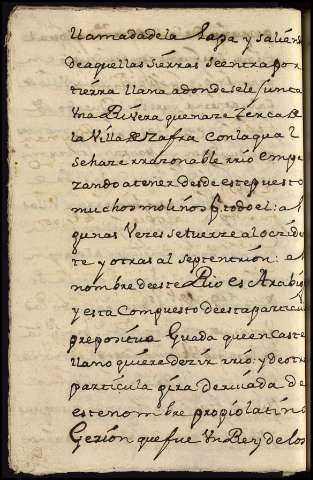 llamada dela Lapa y salien
de aquellas sierras se entra por
tierra llana adonde sele junta
vna Rivera que naze zerca de
la Villa de Zafra con la qual
se haze rrazonable rrio empe
zando a tener desde este puesto
muchos molinos todo el: al
gunas Vezes se tuerze al ocçide
te y otras al septentrion: el
nombre de este Rio es Arabi
y esta Compuesto desta particu
prepositiva Guada que en Caste
llano quiere dezir rrio: y de otr
particula qira derivada de
este nombre propio latino
Gerion que fue Vn Rey de los